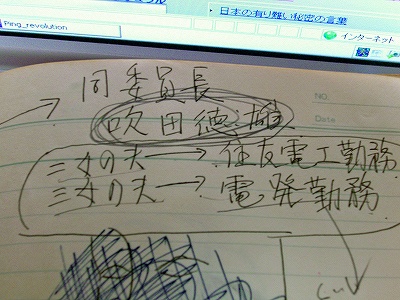 日本の有り難い秘密の言葉
Ping_revolution
インターネット
同委員長
吹田徳雄
NO.
Date
三女の夫→住友電工勤務
三女の夫→電発勤務